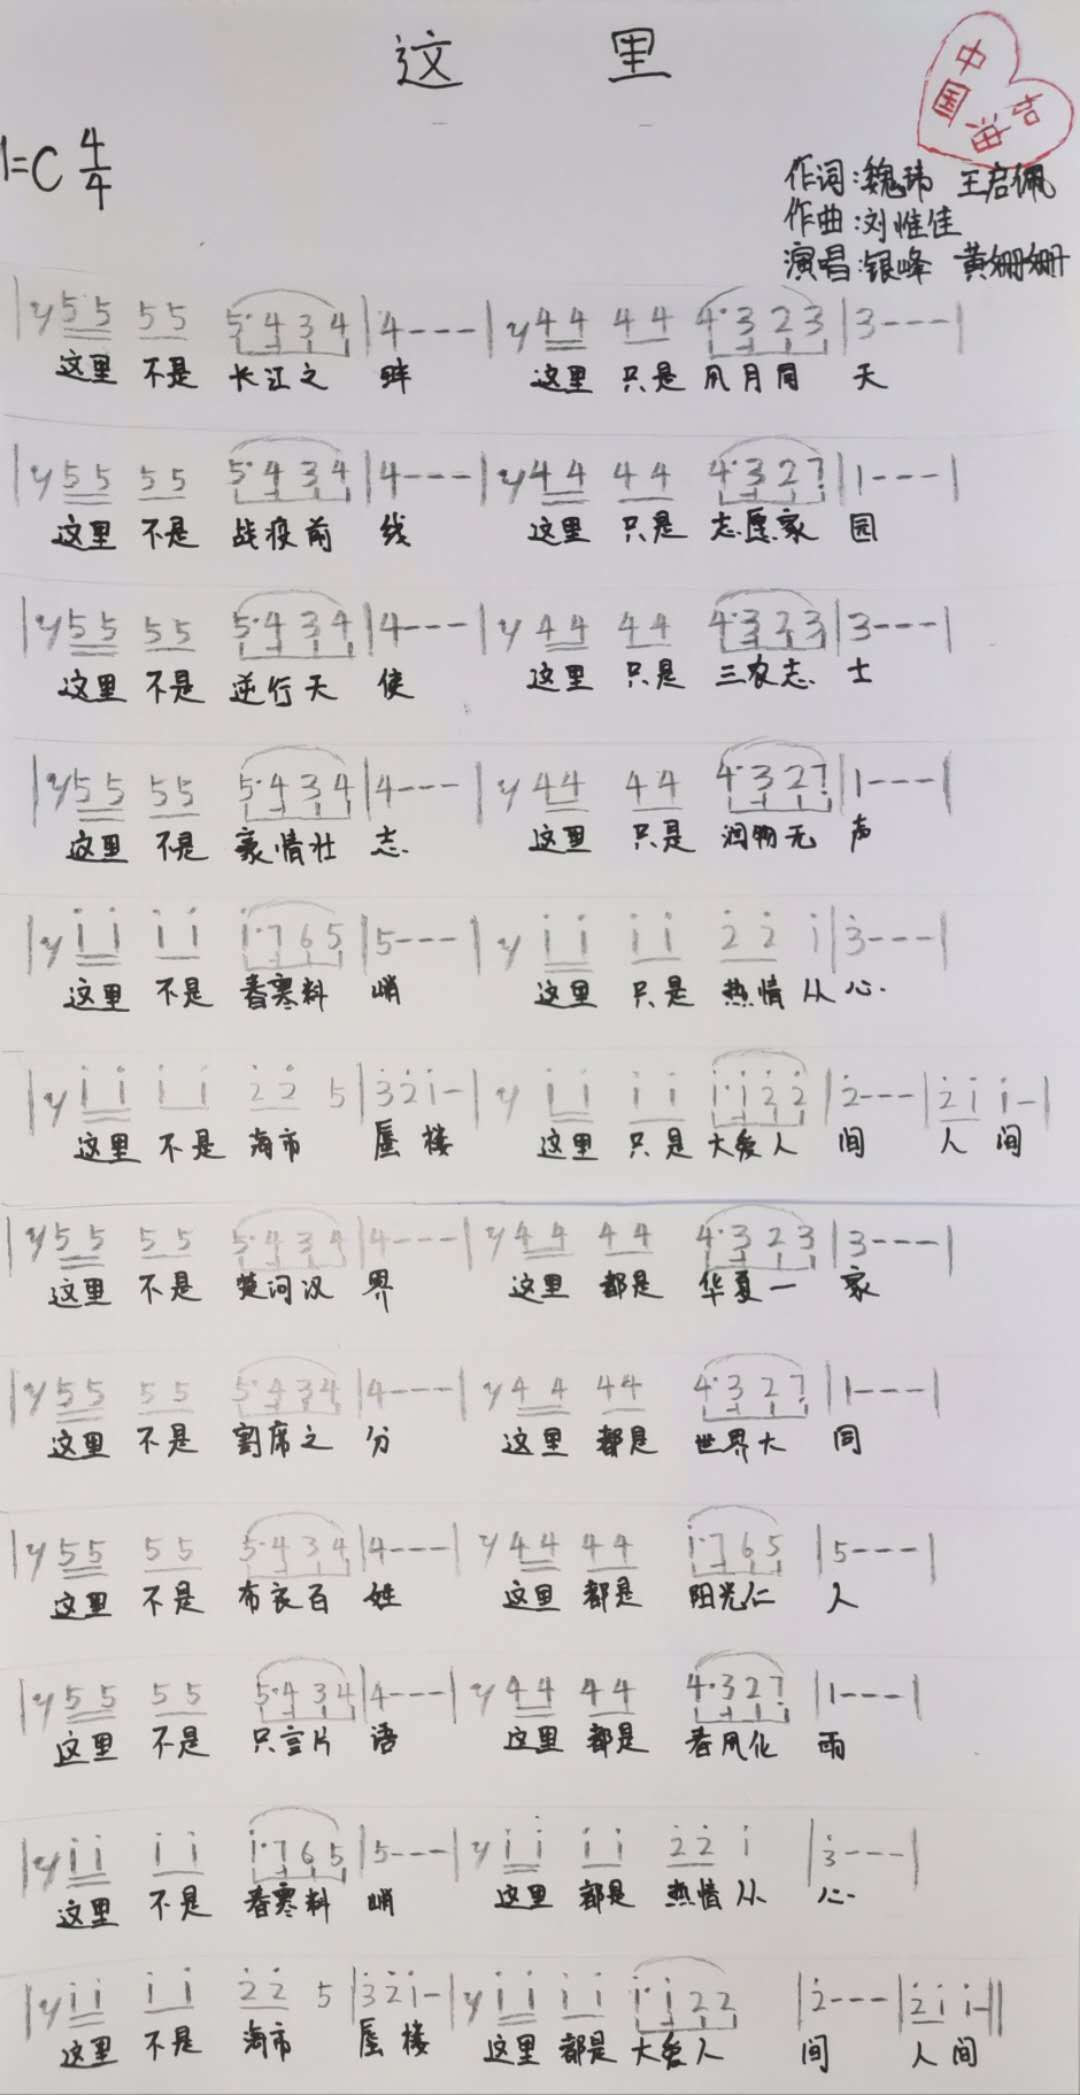 这 里
中国
1=C 4/4
作词:魏玮 王启佩
作曲:刘惟佳
演唱:银峰 黄姗姗
|y55 55 5·434|4---|y44 44 4·323|3---|
这里 不是 长江之 畔 这里 只是 风月同 天
|y55 55 5·434|4---|y44 44 4·327|1---|
这里 不是 战疫前 线 这里 只是 志愿家 园
|y55 55 5·434|4---|y44 44 4·323|3---|
这里 不是 逆行天 使 这里 只是 三农志 士
|y55 55 5·434|4---|y44 44 4·327|1---|
这里 不是 豪情壮 志 这里 只是 润物无 声
|y11 11 1·765|5---|y11 11 22 1|3---|
这里 不是 春寒料 峭 这里 只是 热情从 心
|y11 11 22 5|321-|y11 11 1·122|2---|21 1-|
这里 不是 海市 蜃楼 这里 只是 大爱人 间 人间
|y55 55 5·434|4---|y44 44 4·323|3---|
这里 不是 楚河汉 界 这里 都是 华夏一 家
|y55 55 5·434|4---|y44 44 4·327|1---|
这里 不是 割席之 分 这里 都是 世界大 同
|y55 55 5·434|4---|y44 44 1·765|5---|
这里 不是 布衣百 姓 这里 都是 阳光仁 人
|y55 55 5·434|4---|y44 44 4·327|1---|
这里 不是 只言片 语 这里 都是 春风化 雨
|y11 11 1·765|5---|y11 11 22 1|3---|
这里 不是 春寒料 峭 这里 都是 热情从 心
|y11 11 22 5|321-|y11 11 1·122|2---|21 1-||
这里 不是 海市 蜃楼 这里 都是 大爱人 间 人间